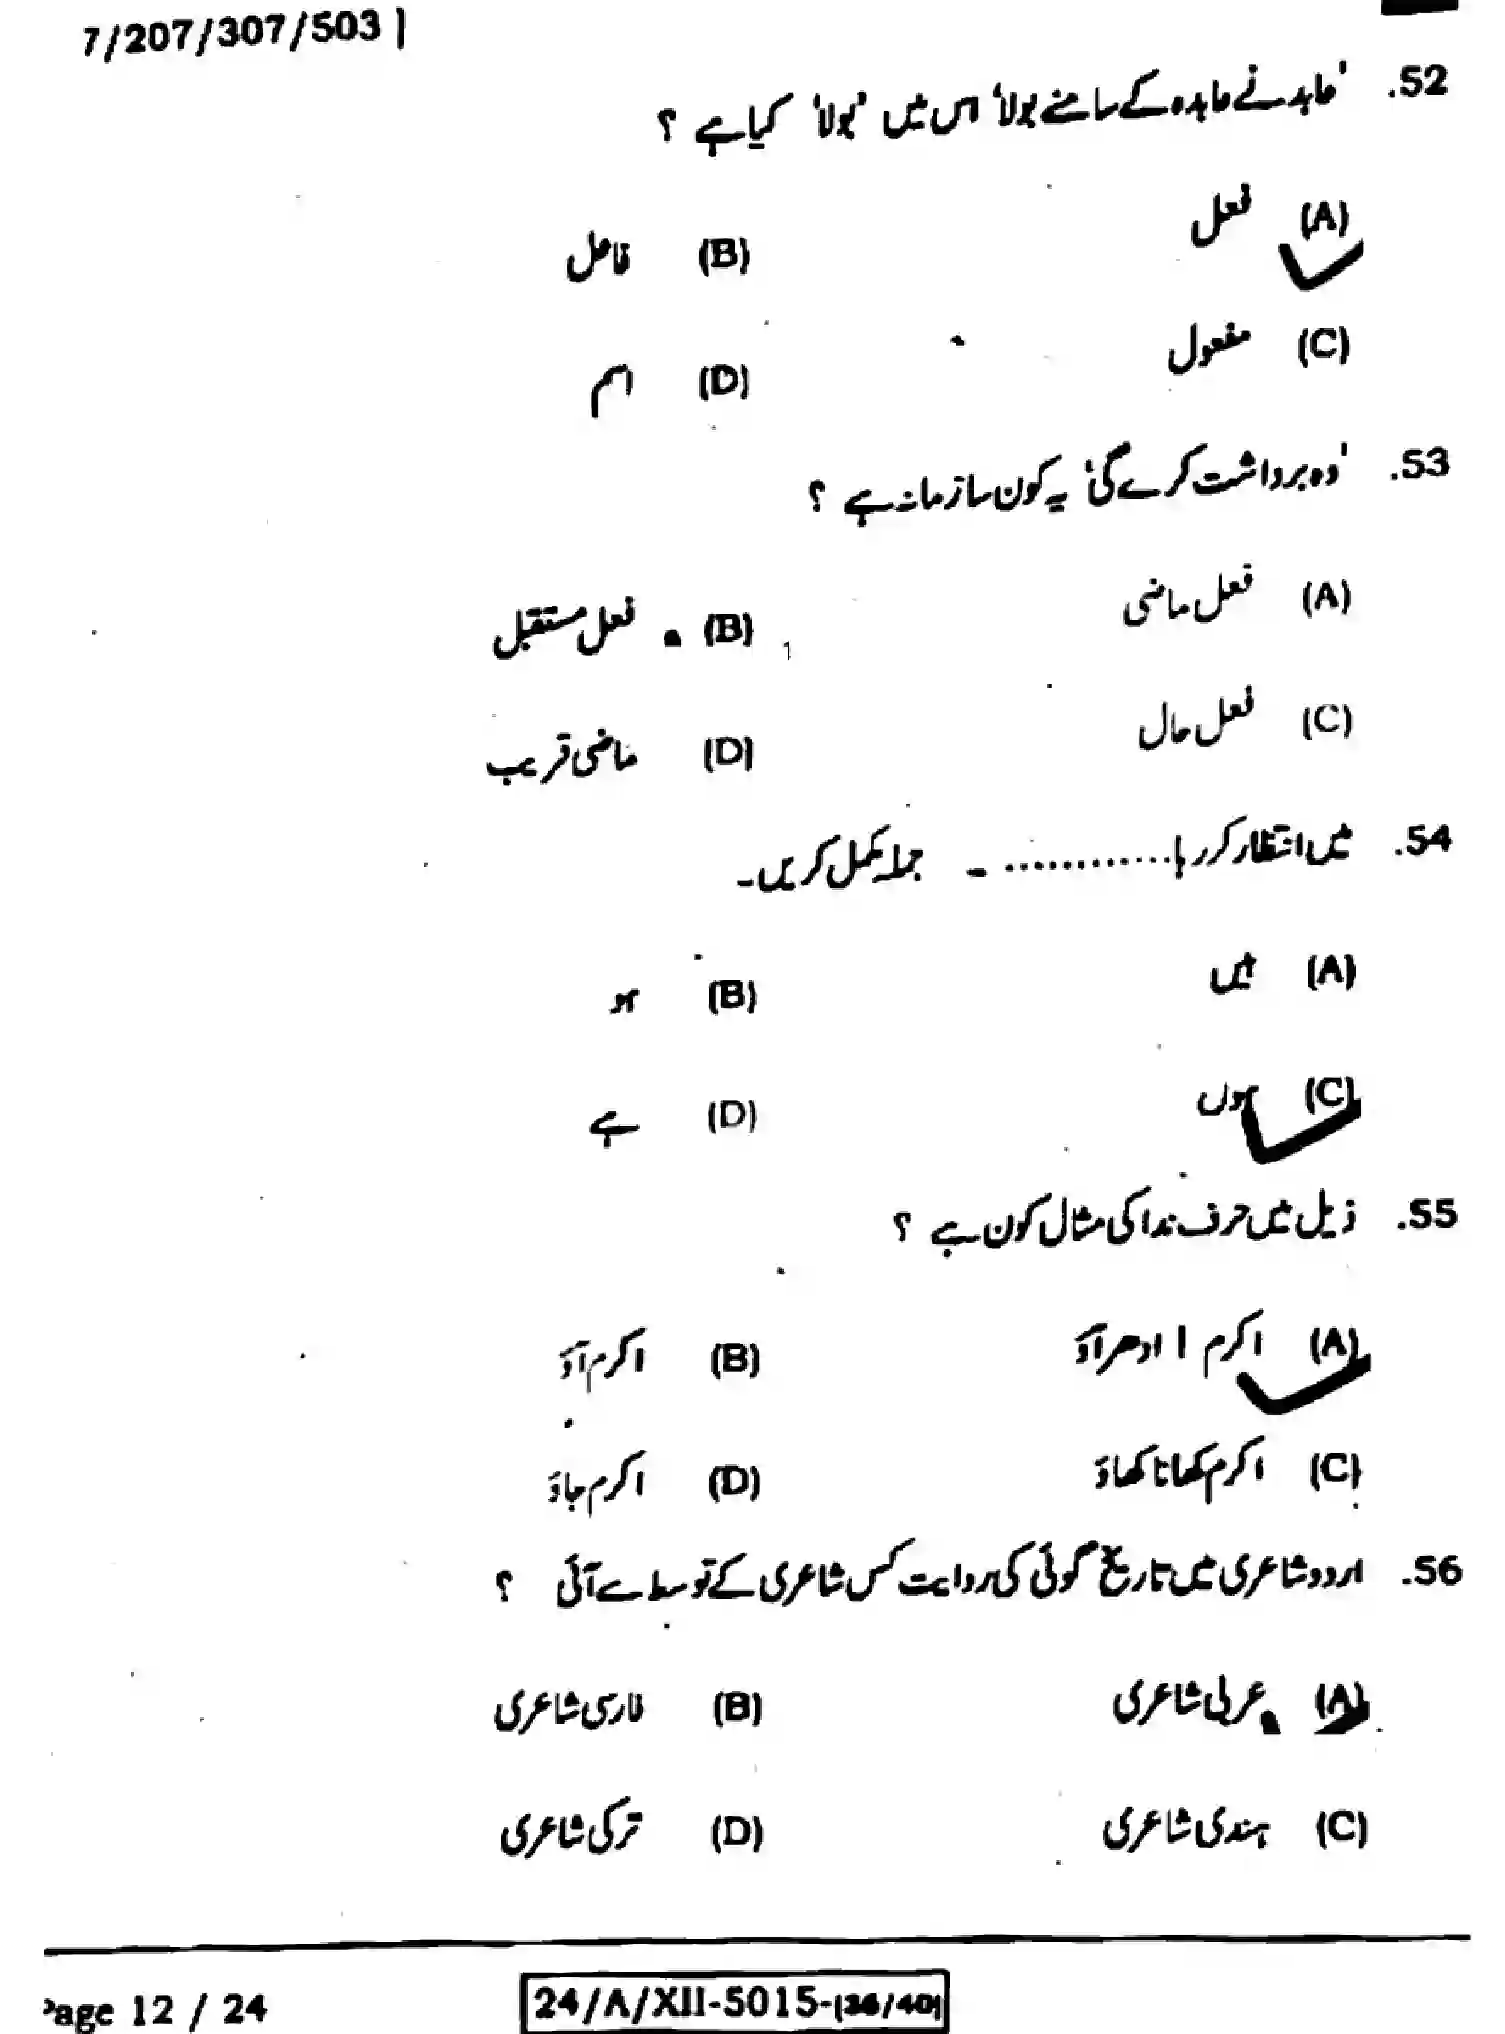 7/207/307/503 |
52. 'عابد نے عابدہ کے سامنے بولا' اس میں 'بولا' کیا ہے ؟
(A) فعل (B) فاعل
(C) مفعول (D) اسم
53. 'وہ برداشت کرے گی' یہ کون سا زمانہ ہے ؟
(A) فعل ماضی (B) فعل مستقبل
(C) فعل حال (D) ماضی قریب
54. میں انتظار کر رہا ............ ۔ جملہ مکمل کریں۔
(A) میں (B) ہو
(C) ہوں (D) ہے
55. ذیل میں حرف ندا کی مثال کون ہے ؟
(A) اکرم ! ادھر آؤ (B) اکرم آؤ
(C) اکرم کھانا کھاؤ (D) اکرم جاؤ
56. اردو شاعری میں تاریخ گوئی کی روایت کس شاعری کے توسط سے آئی ؟
(A) عربی شاعری (B) فارسی شاعری
(C) ہندی شاعری (D) ترکی شاعری
Page 12 / 24 24/A/XII-5015-(36/40)